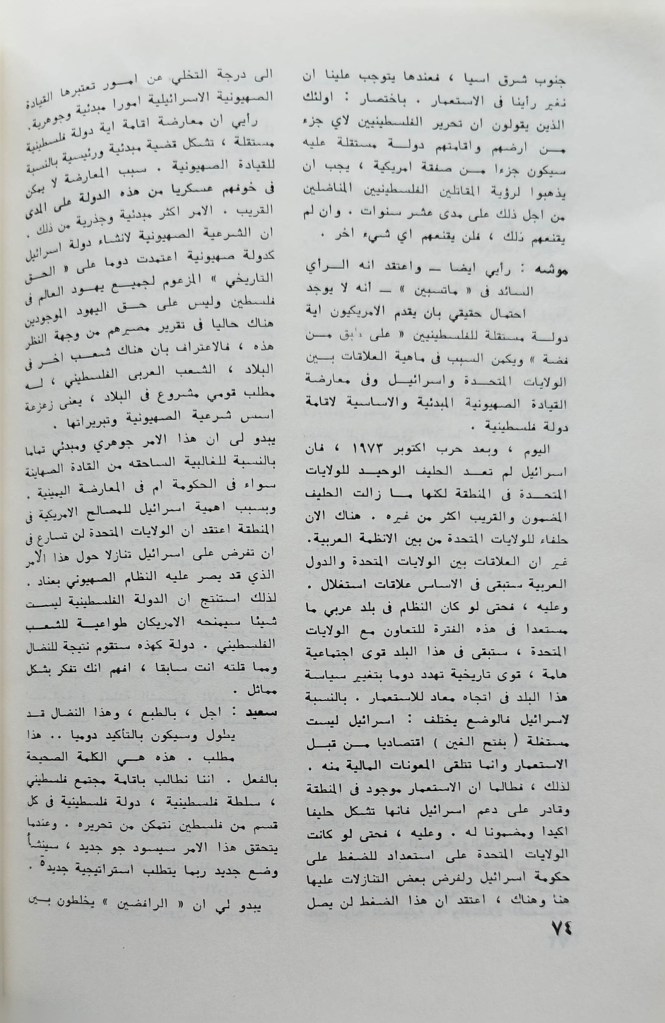 جنوب شرق اسيا ، فعندها يتوجب علينا ان
نغير رأينا فى الاستعمار . باختصار : اولئك
الذين يقولون ان تحرير الفلسطينيين لاي جزء
مـــن ارضهم واقامتهم دولـــة مستقلة عليه
سيكون جزءا مـــن صفقة امريكية ، يجب ان
يذهبوا لرؤية المقاتلين الفلسطينيين المناضلين
من اجل ذلك على مدى عشر سنوات . وان لم
يقنعهم ذلك ، فلن يقنعهم اي شيء اخر .
موشه : رأيي ايضا — واعتقد انه الـــرأي
السائد فى « ماتسبين » — أنه لا يوجد
احتمال حقيقي بان يقدم الامريكيون اية
دولـــة مستقلة للفلسطينيين « على طبق مـــن
فضة » ويكمن السبب فى ماهية العلاقات بـــين
الولايات المتحـــدة واسرائيـــل وفى معارضة
القيادة الصهيونية المبدئية والاساسية لاقامة
دولة فلسطينية .
اليوم ، وبعد حرب اكتوبر ١٩٧٣ ، فان
اسرائيل لم تعـــد الحليف الوحيـــد للولايات
المتحـــدة فى المنطقة لكنها مـــا زالت الحليف
المضمون والقريب اكثر من غيره . هناك الان
حلفاء للولايات المتحدة من بين الانظمة العربية.
غير ان العلاقات بين الولايات المتحدة والدول
العربية ستبقى فى الاساس علاقات استغلال .
وعليه ، فحتى لو كان النظام فى بلد عربي ما
مستعدا فى هذه الفترة للتعاون مع الولايات
المتحدة ، ستبقى فى هذا البلد قوى اجتماعية
هامة ، قوى تاريخية تهدد دوما بتغيير سياسة
هذا البلد فى اتجاه معاد للاستعمار . بالنسبة
لاسرائيل فالوضع يختلف : اسرائيل ليست
مستغلة ( بفتح الغين ) اقتصاديا مـــن قبـــل
الاستعمار وانما تتلقى المعونات المالية منه .
لذلك ، فطالما ان الاستعمار موجود فى المنطقة
وقادر على دعم اسرائيل فانها تشكل حليفا
اكيدا ومضمونا له . وعليه ، فحتى لو كانت
الولايات المتحدة على استعداد للضغط على
حكومة اسرائيل لفرض بعض التنازلات عليها
هنا وهناك ، اعتقد ان هذا الضغط لن يصل
الى درجة التخلي عن امـــور تعتبرها القيادة
الصهيونية الاسرائيلية امورا مبدئية وجوهرية.
رأيي ان معارضة اقامة اية دولة فلسطينية
مستقلة ، تشكل قضية مبدئية ورئيسية بالنسبة
للقيادة الصهيونية . سبب المعارضة لا يمكن
فى خوفهم عسكريا من هذه الدولة على المدى
القريب . الامر اكثر مبدئية وجذرية من ذلك .
ان الشرعية الصهيونية لانشاء دولة اسرائيل
كدولة صهيونية اعتمدت دوما على « الحق
التاريخي » المزعوم لجميع يهود العالم فى
فلسطين وليس على حـــق اليهود الموجودين
هناك حاليا فى تقرير مصيرهم من وجهة النظر
هذه ، فالاعتراف بان هناك شعـــب اخـــر فى
البلاد ، الشعب العربى الفلسطيني ، لـــه
مطلب قومي مشروع فى البلاد ، يعنى زعزعة
اسس شرعية الصهيونية وتبريراتها .
يبدو لى ان هذا الامر جوهري ومبدئي تماما
بالنسبة للغالبية الساحقه من القادة الصهاينة
سواء فى الحكومة ام فى المعارضة اليمينية .
وبسبب اهمية اسرائيل للمصالح الامريكية فى
المنطقة اعتقد ان الولايات المتحدة لن تسارع فى
ان تفرض على اسرائيل تنازلا حول هذا الأمر
الذي قد يصر عليه النظام الصهيوني بعناد .
لذلك استنتج ان الدولة الفلسطينية ليست
شيئا سيمنحه الامريكان طواعيـــة للشعـــب
الفلسطيني . دولة كهذه ستقوم نتيجة للنضال
ومما قلته انت سابقا ، افهم انك تفكر بشكل
مماثل .
سعيد : اجل ، بالطبع ، وهذا النضال قـــد
يطول وسيكون بالتأكيد دوميا .. هذا
مطلب . هذه هـــي الكلمة الصحيحة
بالفعل . اننا نطالب باقامة مجتمع فلسطيني
، سلطة فلسطينية ، دولة فلسطينية فى كل
قسم من فلسطين نتمكن من تحريره . وعندما
يتحقق هذا الامر سيسود جو جديد ، سينشأ
وضع جديد ربما يتطلب استراتيجية جديدة .
يبدو لي ان « الرافضين » يخلطون بـــين
٧٤